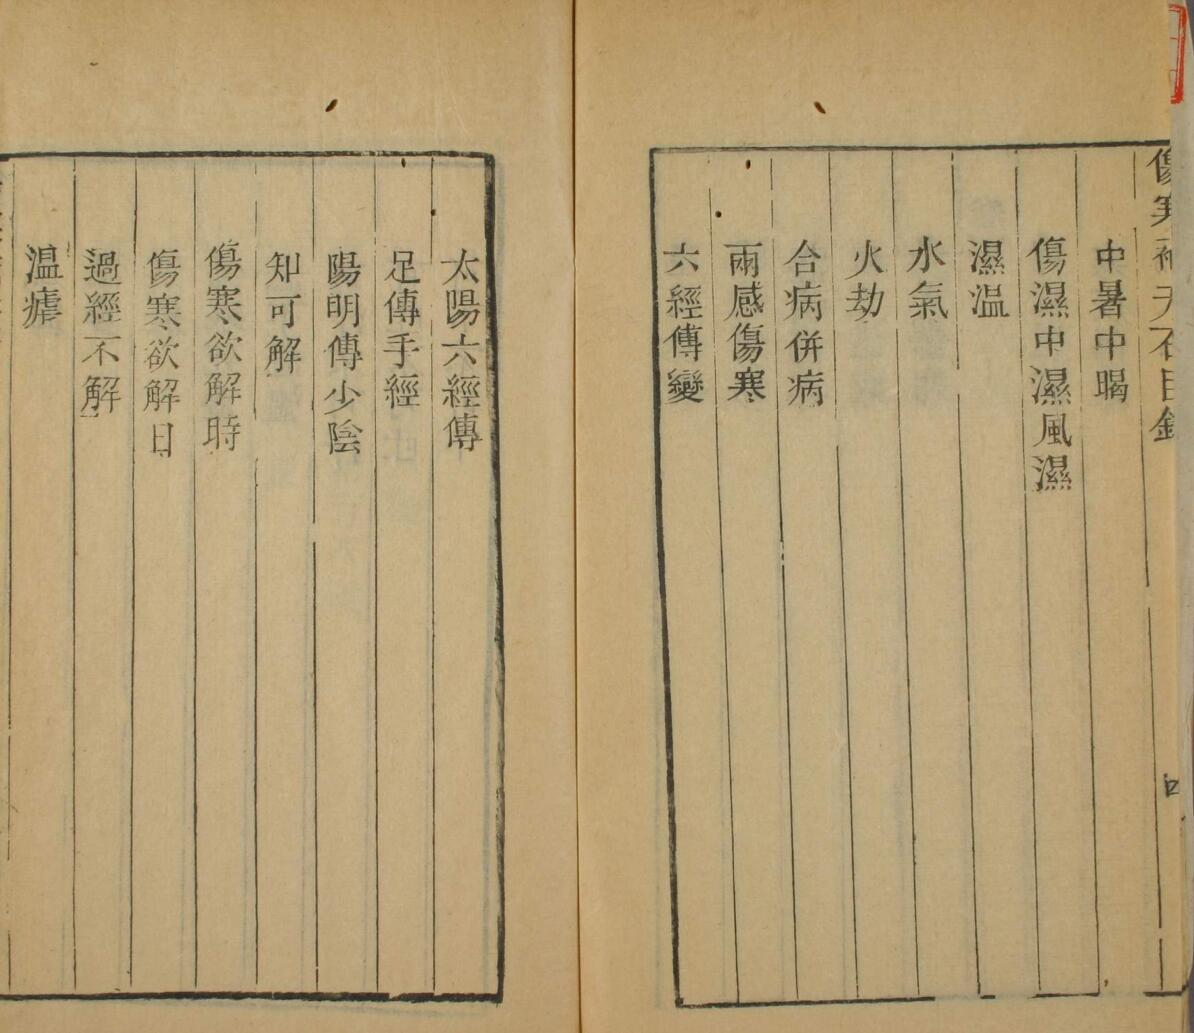 傷寒補天石目錄
中暑中暍
傷濕中濕風濕
濕温
水氣
火劫
合病併病
兩感傷寒
六經傳變
太陽六經傳
足傳手經
陽明傳少陰
知可解
傷寒欲解時
傷寒欲解日
過經不解
温瘧